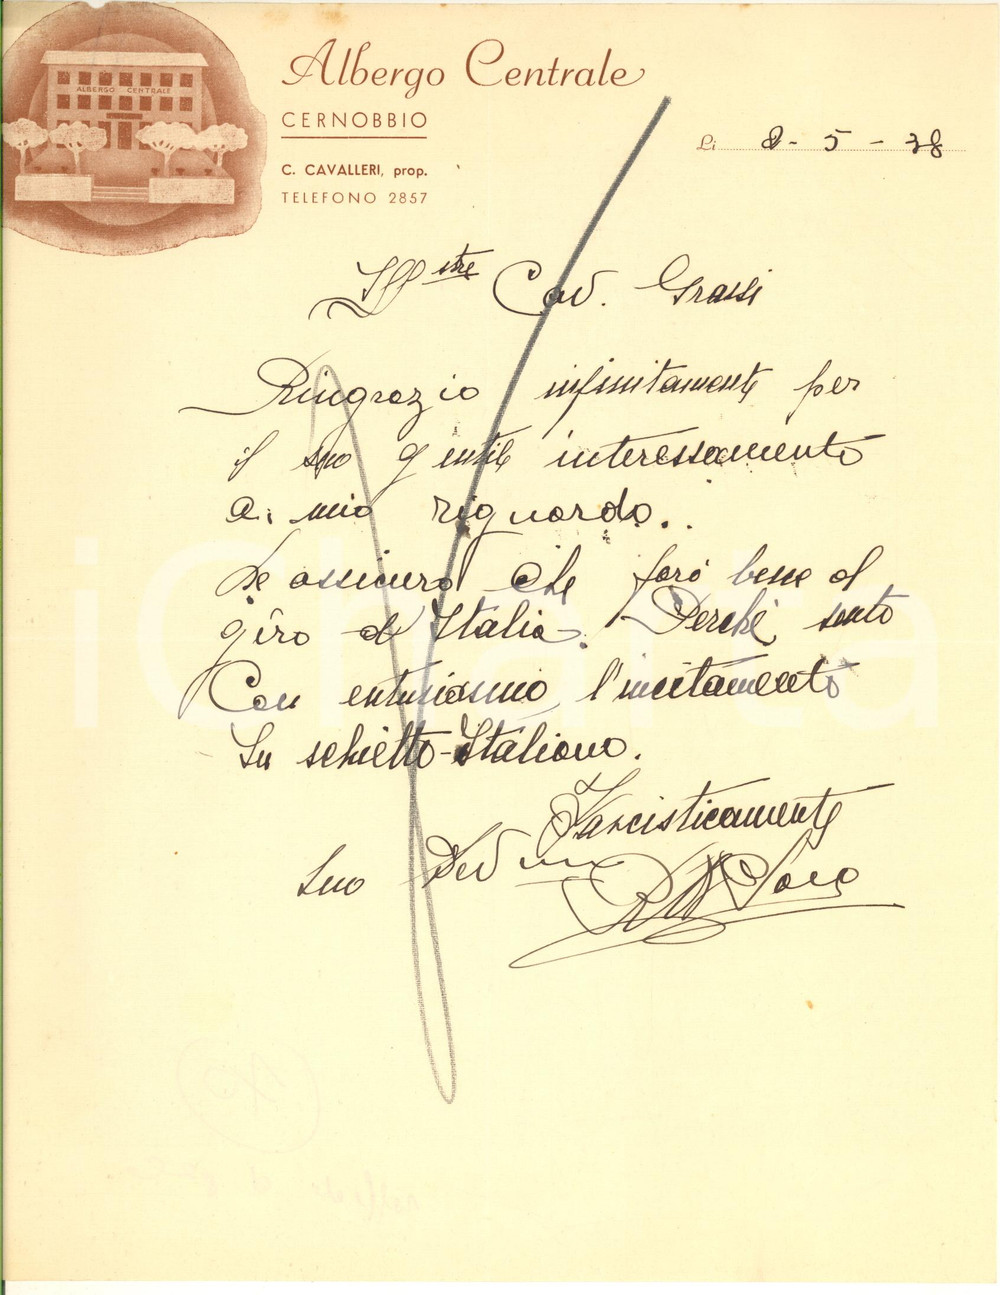 ALBERGO CENTRALE
Albergo Centrale
CERNOBBIO
C. CAVALLERI, prop.
TELEFONO 2857
Li 8-5-38
Ill stre Cav. Grassi
Ringrazio infinitamente per
il suo gentile interessamento
a mio riguardo..
Le assicuro che farò bene al
giro d'Italia. Perché sento
Con entusiasmo l'incitamento
Su schietto Italiano.
Fascisticamente
Suo Dev mo
iCharta